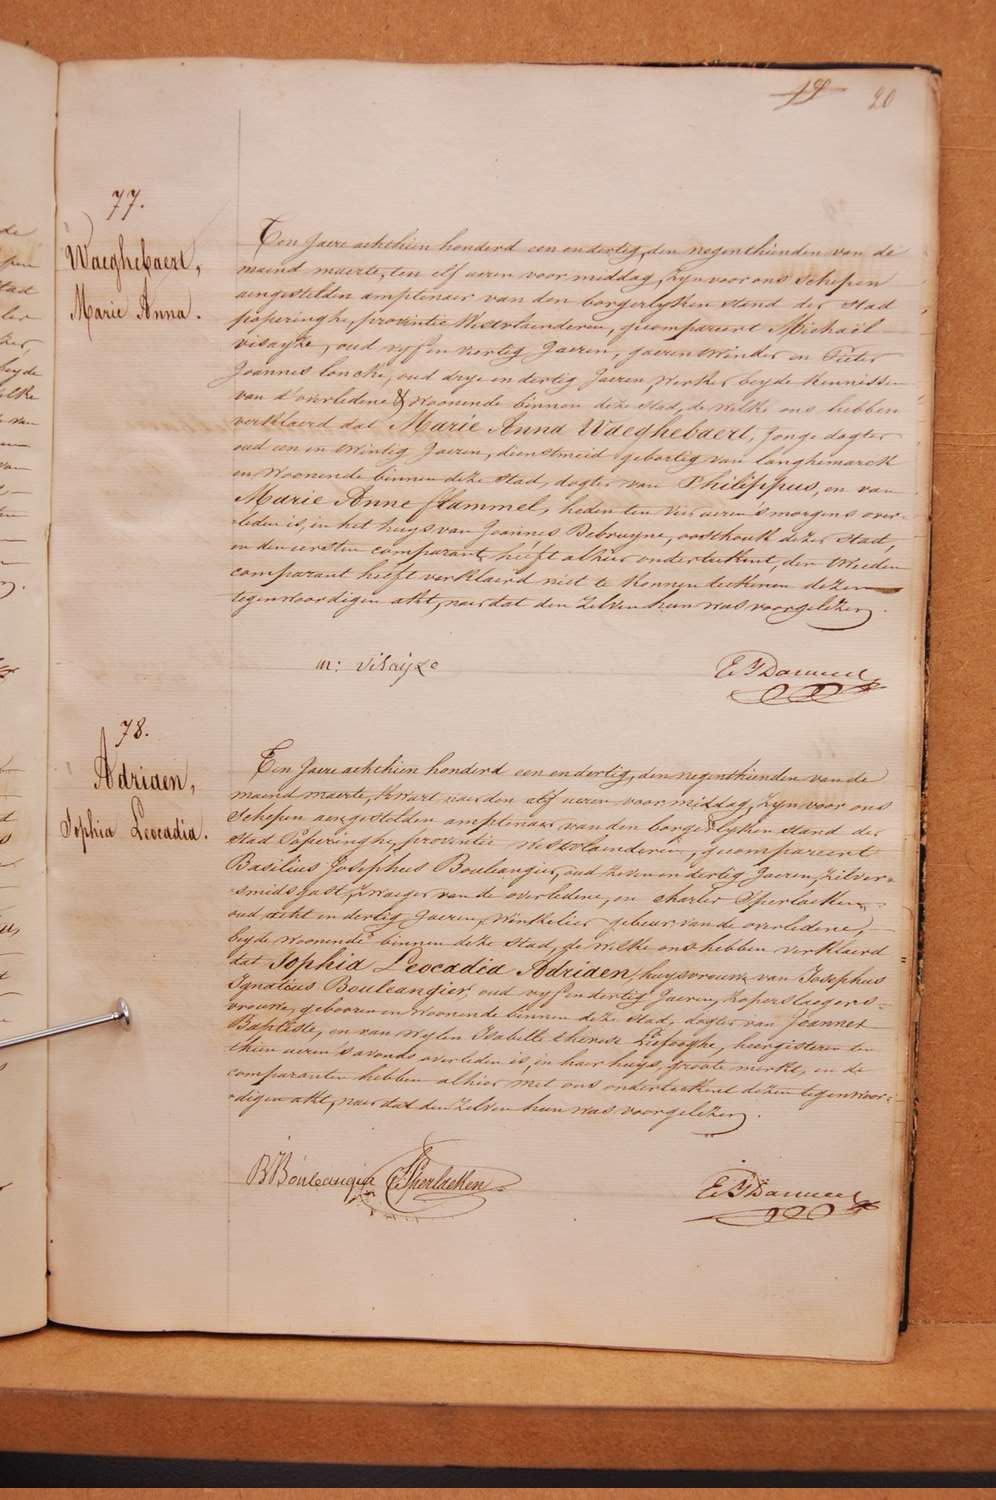 19 20
77.
Waeghebaert,
Marie Anna.
Ten Jaere achthien honderd een en dertig, den negenthienden van de
maend maerte, ten elf ueren voormiddag, zyn voor ons schepen
aengestelden amptenaer van den borgerlyken stand der Stad
poperinghe, provintie Westvlaenderen, gecompareert Michaël
visayze, oud vyf en viertig Jaeren, garentwinder en Pieter
Joannes Loncke, oud drye en dertig Jaeren, werker beyde kennissen
van d'overledene & woonende binnen deze stad, de welke ons hebben
verklaerd dat Marie Anna Waeghebaert, Jonge dogter
oud een en twintig Jaeren, dienstmeid gebortig van langhemarck
en woonende binnen deze stad, dogter van Philippus, en van
Marie Anne Hammel, heden ten vier ueren 's morgens over-
leden is, in het huys van Joannes Debruyne, oosthouk dezer stad,
en den eersten comparant heeft alhier onderteekent, den tweeden
comparant heeft verklaerd niet te konnen teekenen dezen
tegenwoordigen akt, naer dat den zelven hun was voorgelezen.
m: visayze
78.
Adriaen,
Sophia Leocadia.
Een Jaere achthien honderd een en dertig, den negenthienden van de
maend maerte, kwart naer den elf ueren voormiddag, zyn voor ons
Schepen aengestelden amptenaer van den borgerlyken stand der
stad Poperinghe, provintie Westvlaenderen, gecompareert
Basilius Josephus Bouleangier, oud zeven en dertig Jaeren, zilver-
smidsgast, zwaeger van de overledene, en charles Sperlaeken,
oud acht en dertig Jaeren, winkelier gebuer van de overledene,
beyde woonende binnen deze stad, de welke ons hebben verklaerd
dat Sophia Leocadia Adriaen, huysvrouw van Josephus
Ignatius Bouleangier, oud vyf en dertig Jaeren, koperslaegers-
vrouw, gebooren en woonende binnen deze stad, dogter van Joannes
Baptiste, en van wylen Isabelle therese Liefooghe, heergisteren ten
thien ueren 's avonds overleden is, in haer huys, groote merkt, en de
comparanten hebben alhier met ons onderteekent dezen tegenwoor-
digen akt, naer dat den zelven hun was voorgelezen.
B Bouleangier C Sperlaeken